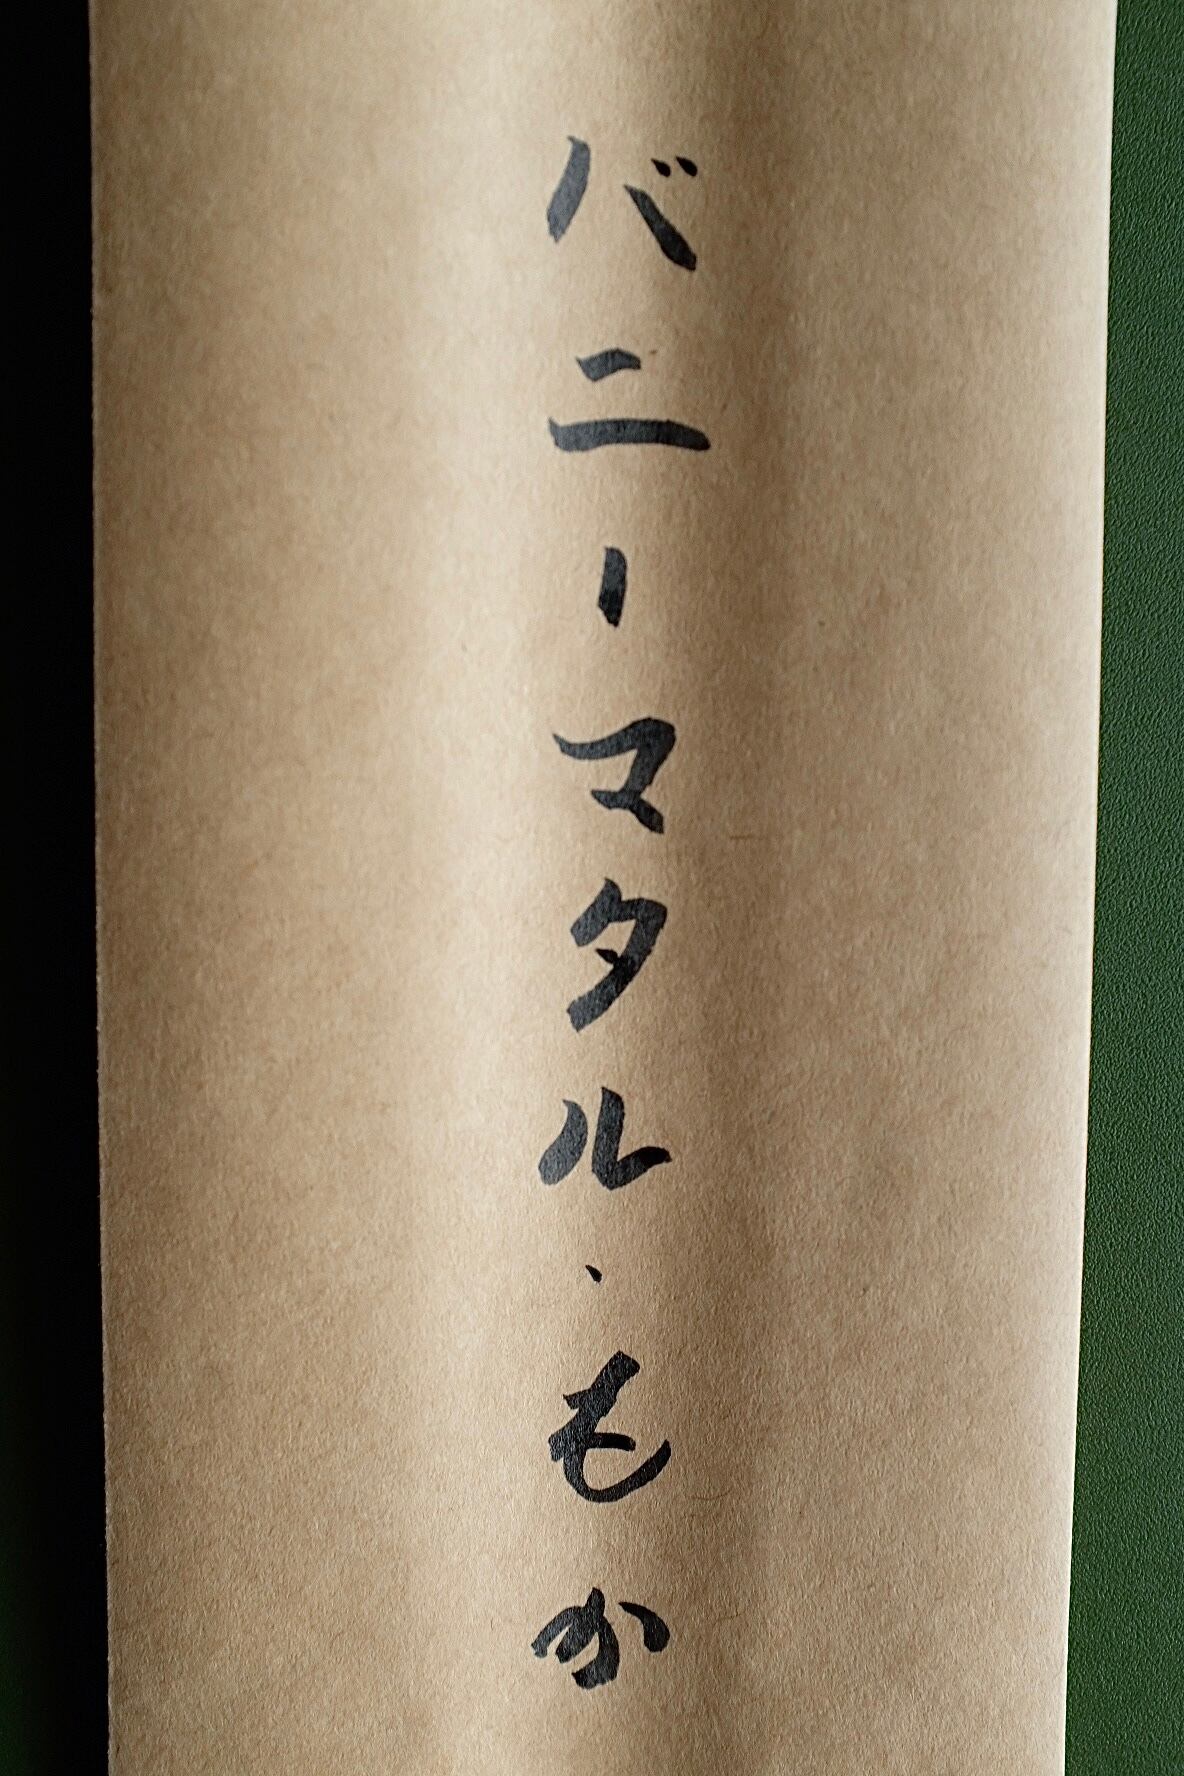 バニーマタル・もか